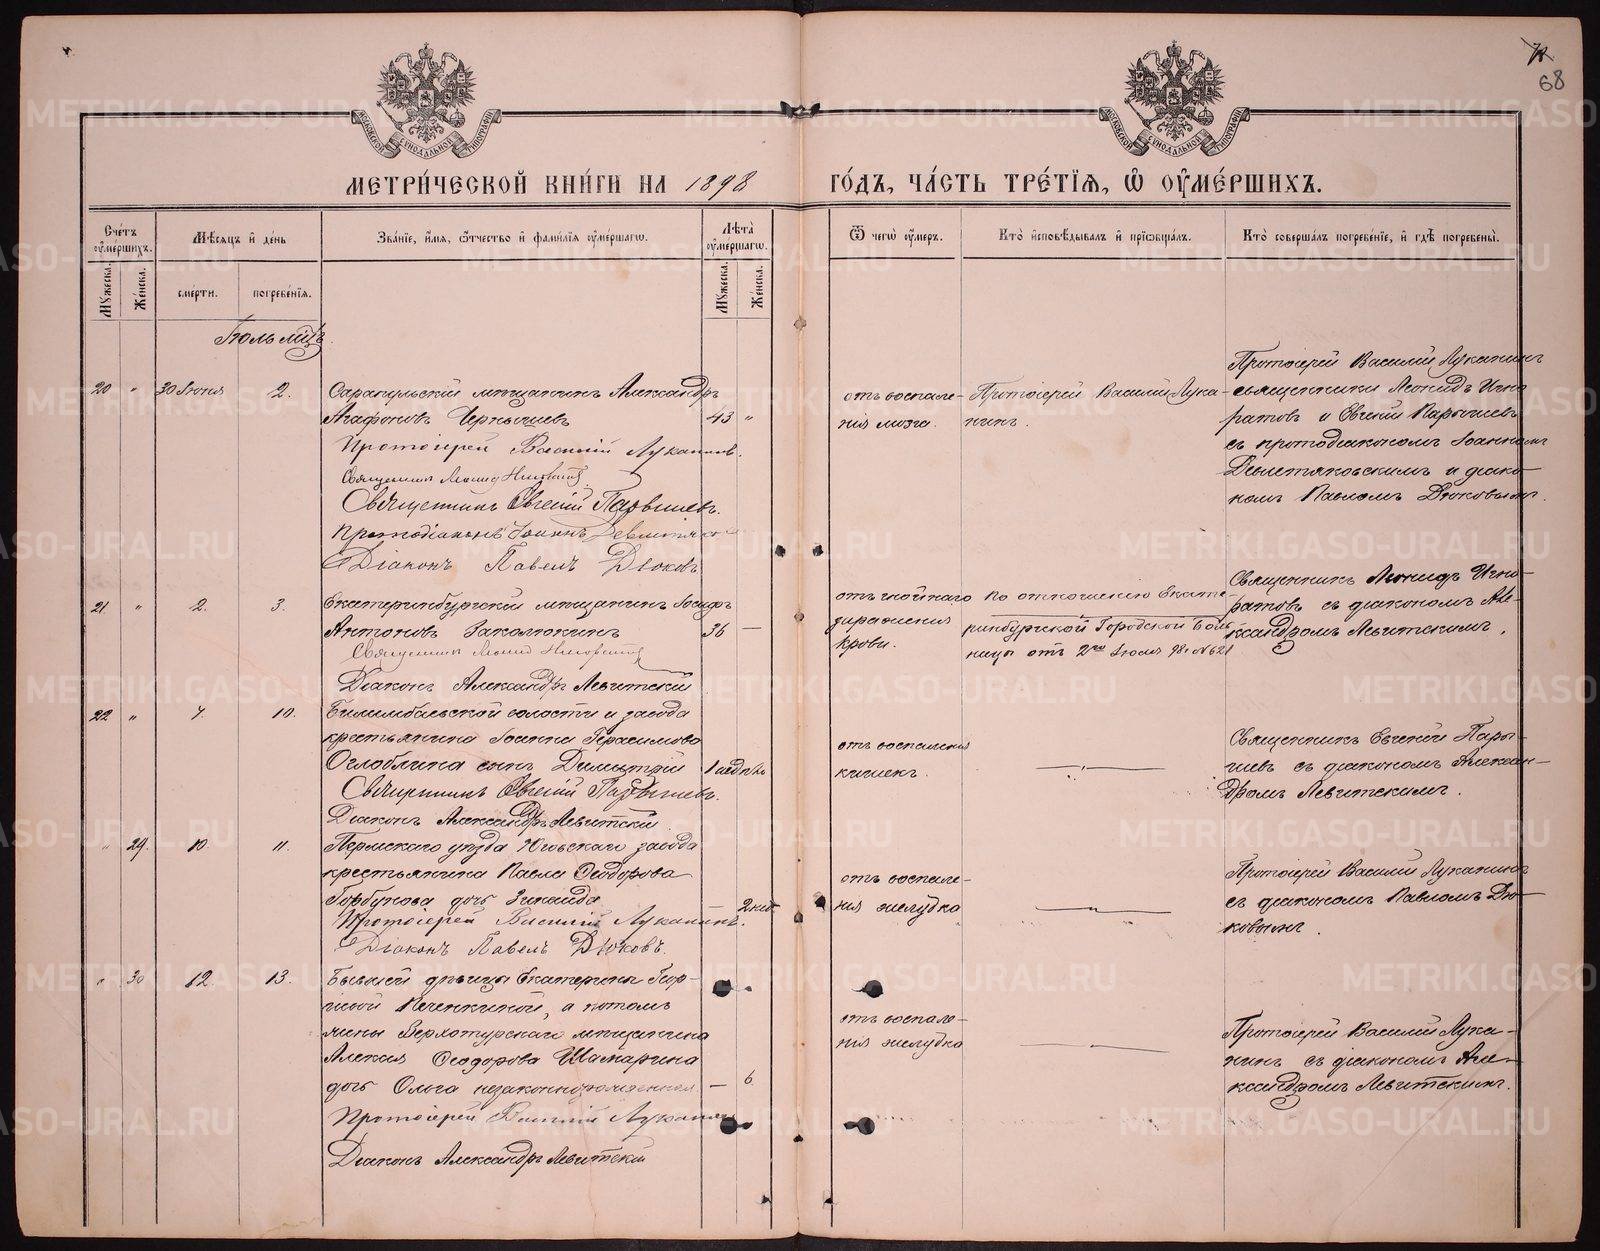 72
68
МЕТРИ́ЧЕСКОЙ КНИ́ГИ НА 1898 ГО́ДЪ, ЧА́СТЬ ТРЕ́ТІѦ, Ѡ ОУ҆МЕ́РШИХЪ.
Сче́тъ оу҆ме́ршихъ.
Мꙋ́жеска.
Же́нска.
Мѣ́сѧцъ и҆ де́нь
сме́рти.
погребе́нїѧ.
Зва́нїе, и҆́мѧ, ѻ҆́тчество и҆ фами́лїѧ оу҆ме́ршагѡ.
Лѣ́та оу҆ме́ршагѡ.
Мꙋ́жеска.
Же́нска.
Ѿ чегѡ̀ оу҆́меръ.
Кто̀ и҆сповѣ́дывалъ и҆ прїѡбща́лъ.
Кто̀ соверша́лъ погребе́нїе, и҆ гдѣ̀ погребены̀.
Іюль мцъ
20 " 30 Іюня 2.
Сарапульскій мѣщанинъ Александръ
Агафоновъ Чернышевъ 43 "
Протоіерей Василій Луканинъ.
Священникъ Леонид Игноратов
Священникъ Евгеній Парышевъ.
Протодіаконъ Іоаннъ
Діаконъ Павелъ Дюковъ
отъ воспале-
нія мозга.
Протоіерей Василій Лука-
нинъ.
Протоіерей Василій Луканинъ
священники Леонидъ Игно-
ратовъ и Евгеній Парышевъ
съ протодіакономъ Іоанномъ
Девлетяковскимъ и діако-
номъ Павломъ Дюковымъ.
21. " 2. 3.
Екатеринбургскій мѣщанинъ Іосифъ
Антоновъ Заколюкинъ 36 —
Священникъ Леонид Игноратов
Діаконъ Александръ Левитскій
отъ гнойнаго
зараженія
крови.
По отношенію Екате-
ринбургской Городской Боль
ницы отъ 2го Іюля 98г № 621
Священникъ Леонидъ Игно-
ратовъ съ діакономъ Але-
ксандромъ Левитскимъ.
22 " 7. 10.
Билимбаевской волости и завода
крестьянина Іоанна Герасимова
Оглоблина сынъ Димитрій
Священникъ Евгеній Парышевъ.
Діаконъ Александръ Левитскій.
отъ воспаленія
кишекъ.
Священникъ Евгеній Пары-
шевъ съ діакономъ Алексан-
дромъ Левитскимъ.
" 29. 10. 11.
Пермскаго уѣзда Юговскаго завода
крестьянина Павла Ѳеодорова
Горбунова дочь Зинаида — 2 нед
Протоіерей Василій Луканинъ.
Діаконъ Павелъ Дюковъ.
отъ воспале-
нія желудка
Протоіерей Василій Луканинъ
съ діакономъ Павломъ Дю-
ковымъ.
" 30 12. 13.
Бывшей дѣвицы Екатерины Геор-
гіевой Печенкиной, а потомъ
жены Верхотурскаго мѣщанина
Алексія Ѳеодорова Шамарина
дочь Ольга незаконнорожденная — 6.
Протоіерей Василій Луканинъ
Діаконъ Александръ Левитскій
отъ воспале-
нія желудка
Протоіерей Василій Лука-
нинъ съ діакономъ Але-
ксандромъ Левитскимъ.